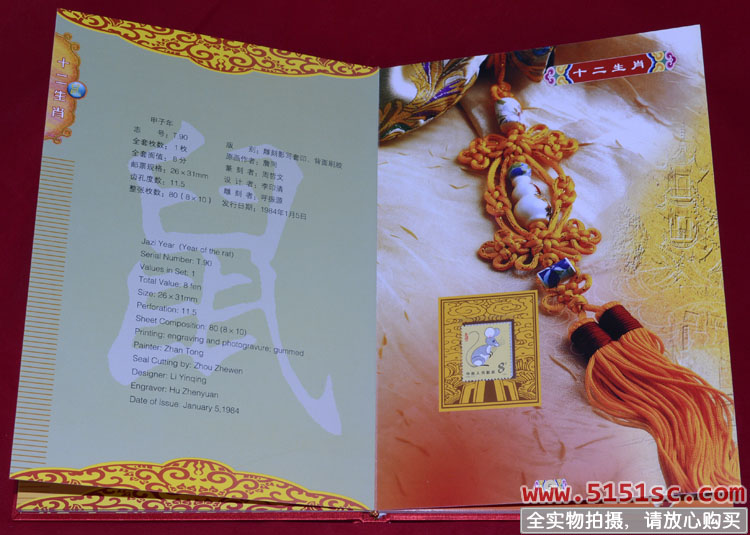 十二生肖
鼠
甲子年
志 号：T.90
全套枚数：1枚
全套面值：8分
邮票规格：26×31mm
齿孔度数：11.5
整张枚数：80（8×10）
版 别：雕刻影写套印、背面刷胶
原画作者：詹同
篆 刻 者：周哲文
设 计 者：李印清
雕 刻 者：呼振源
发行日期：1984年1月5日
Jazi Year (Year of the rat)
Serial Number: T.90
Values in Set: 1
Total Value: 8 fen
Size: 26×31mm
Perforation: 11.5
Sheet Composition: 80 (8×10)
Printing: engraving and photogravure; gummed
Painter: Zhan Tong
Seal Cutting by: Zhou Zhewen
Designer: Li Yinqing
Engraver: Hu Zhenyuan
Date of Issue: January 5,1984
十二生肖
中国人民邮政 8分
www.5151sc.com
全实物拍摄，请放心购买